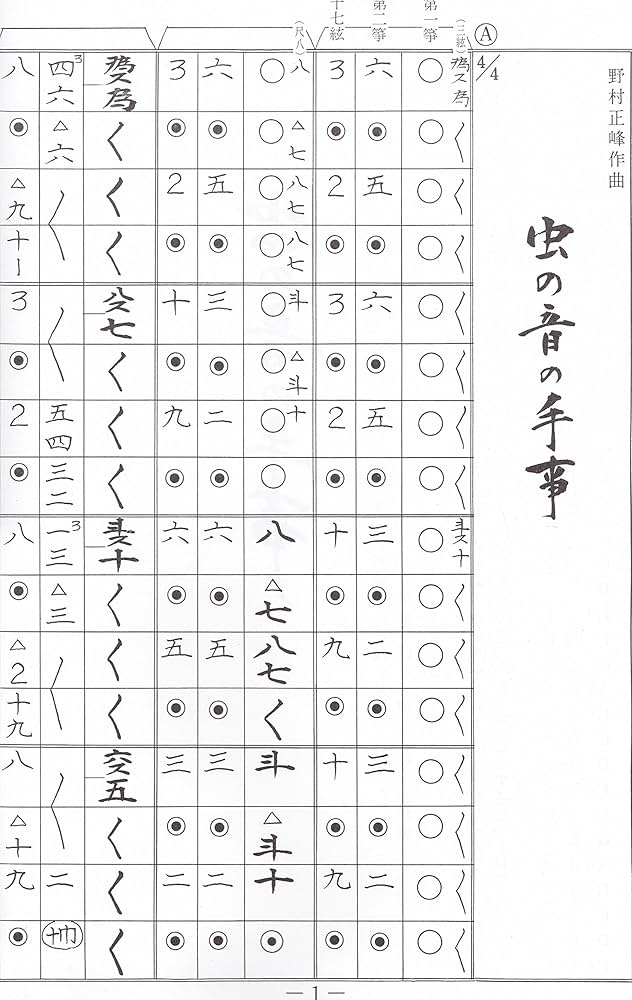 野村正峰作曲
虫の音の手事
Ⓐ
4/4
(三絃)
為ス為 く く く く く く く 斗ス十 く く く く く く く
第一箏
○ ○ ○ ○ ○ ○ ○ ○ ○ ○ ○ ○ ○ ○ ○ ○
第二箏
六 ◉ 五 ◉ 六 ◉ 五 ◉ 三 ◉ 二 ◉ 三 ◉ 二 ◉
十七絃
3 ◉ 2 ◉ 3 ◉ 2 ◉ 十 ◉ 九 ◉ 十 ◉ 九 ◉
(尺八)
八 △七 八七 八七 斗 △斗 十
○ ○ ○ ○ ○ ○ ○ ○ 八 △七 八七 く 斗 △斗 十 ◉
六 ◉ 五 ◉ 三 ◉ 二 ◉ 六 ◉ 五 ◉ 三 ◉ 二 ◉
3 ◉ 2 ◉ 十 ◉ 九 ◉ 六 ◉ 五 ◉ 三 ◉ 二 ◉
為ス為 く く く 八ス七 く く く 斗ス十 く く く 六ス五 く く く
四3六 △六 〱 〱 五四 三二 一3三 △三 〱 〱 二 十巾
八 ◉ △九 十一 3 ◉ 2 ◉ 八 ◉ △2 十九 八 △十 九 ◉
— 1 —